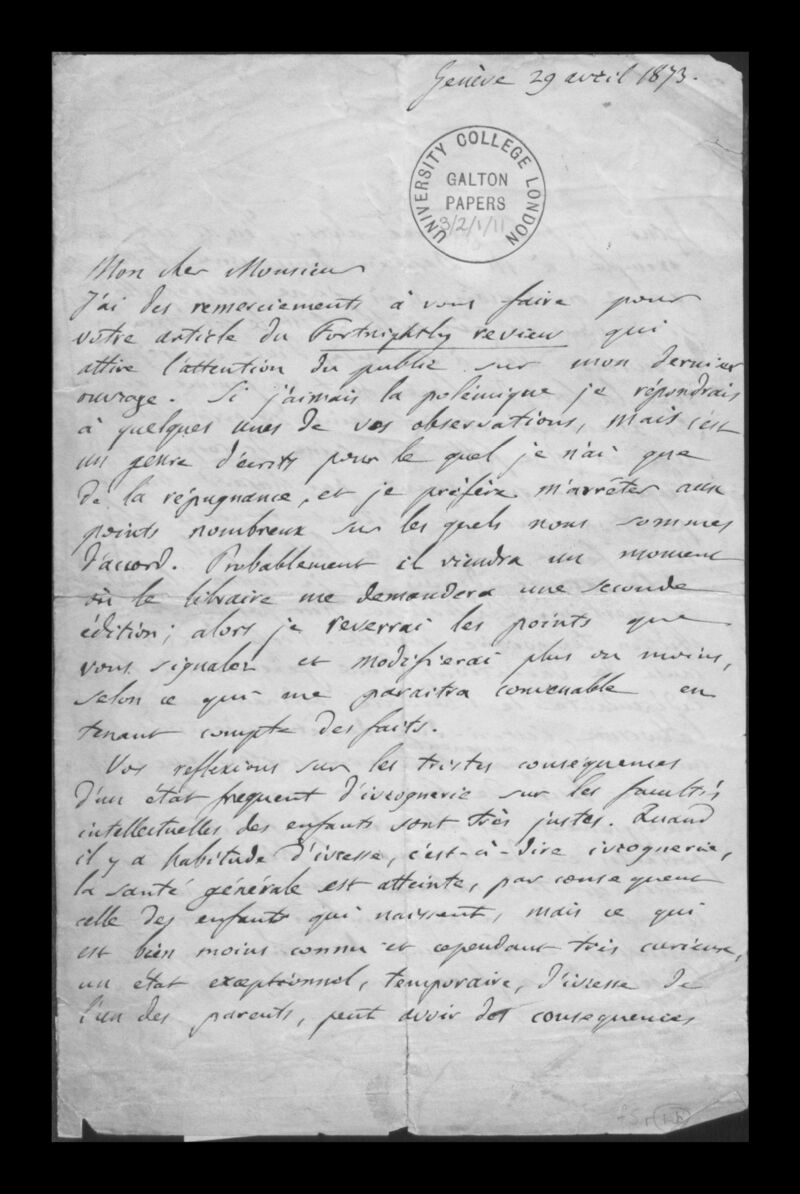 Genève 29 avril 1873.
UNIVERSITY COLLEGE LONDON
GALTON
PAPERS
3/2/1/11
Mon cher Monsieur
J'ai des remerciements à vous faire pour
votre article du Fortnightly review qui
attire l'attention du public sur mon dernier
ouvrage. Si j'aimais la polémique je répondrais
à quelques unes de vos observations, mais c'est
un genre d'écrits pour le quel je n'ai que
de la répugnance, et je préfère m'arrêter aux
points nombreux sur les quels nous sommes
d'accord. Probablement il viendra un moment
où le libraire me demandera une seconde
édition; alors je reverrai les points que
vous signalez et modifierai plus ou moins,
selon ce qui me paraitra convenable en
tenant compte des faits.
Vos reflexions sur les tristes consequences
d'un état frequent d'ivrognerie sur les facultés
intellectuelles des enfants sont très justes. Quand
il y a habitude d'ivresse, c'est-à-dire ivrognerie,
la santé générale est atteinte, par consequent
celle des enfants qui naissent, mais ce qui
est bien moins connu et cependant très curieux,
un état exceptionnel, temporaire, d'ivresse de
l'un des parents, peut avoir des consequences